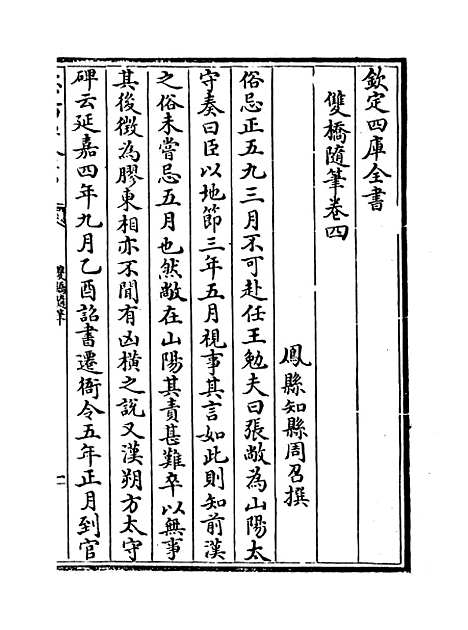 欽定四庫全書
雙橋隨筆卷四
鳳縣知縣周召撰
俗忌正五九三月不可赴任王勉夫曰張敞為山陽太
守奏曰臣以地節三年五月視事其言如此則知前漢
之俗未嘗忌五月也然敞在山陽其責甚難卒以無事
其後徴為膠東相亦不聞有凶横之說又漢朔方太守
碑云延嘉四年九月乙酉詔書遷衙令五年正月到官
雙橋隨筆
一